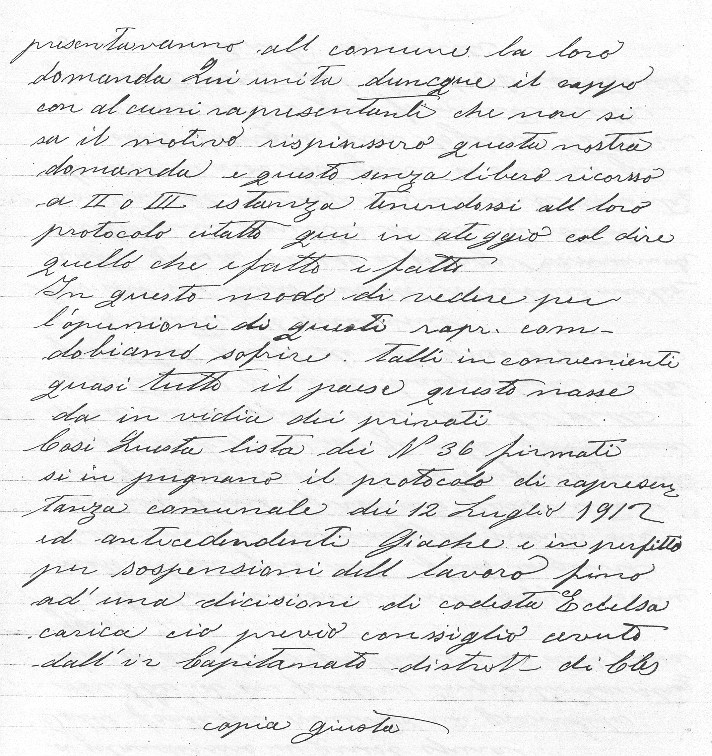 presentaranno all comune la loro
domanda Qui unita duncque il cappo
con alcuni rapresentanti che non si
sa il motivo rispinssero questa nostra
domanda e questo senza libero ricorsso
a II o III estanza tenendossi all loro
protocolo citatto qui in ateggio col dire
quello che e fatto e fatto
In questo modo di vedere per
l'opunioni di questi rapr. com-
dobiamo sofrire. talli in convenienti
quasi tutto il paese questo nasse
da in vidia dei privati
Cosi Questa lista dei N 36 firmati
si in pugnano il protocolo di rapresen
tanza comunale dei 12 Luglio 1912
ed antecedendenti Giache e in perfitto
per sospensioni dell lavoro fino
ad'una dicisioni di codesta Edelsa
carica cio previo conssiglio avuto
dall'ir Capitanato distrett di Cles
copia giusta